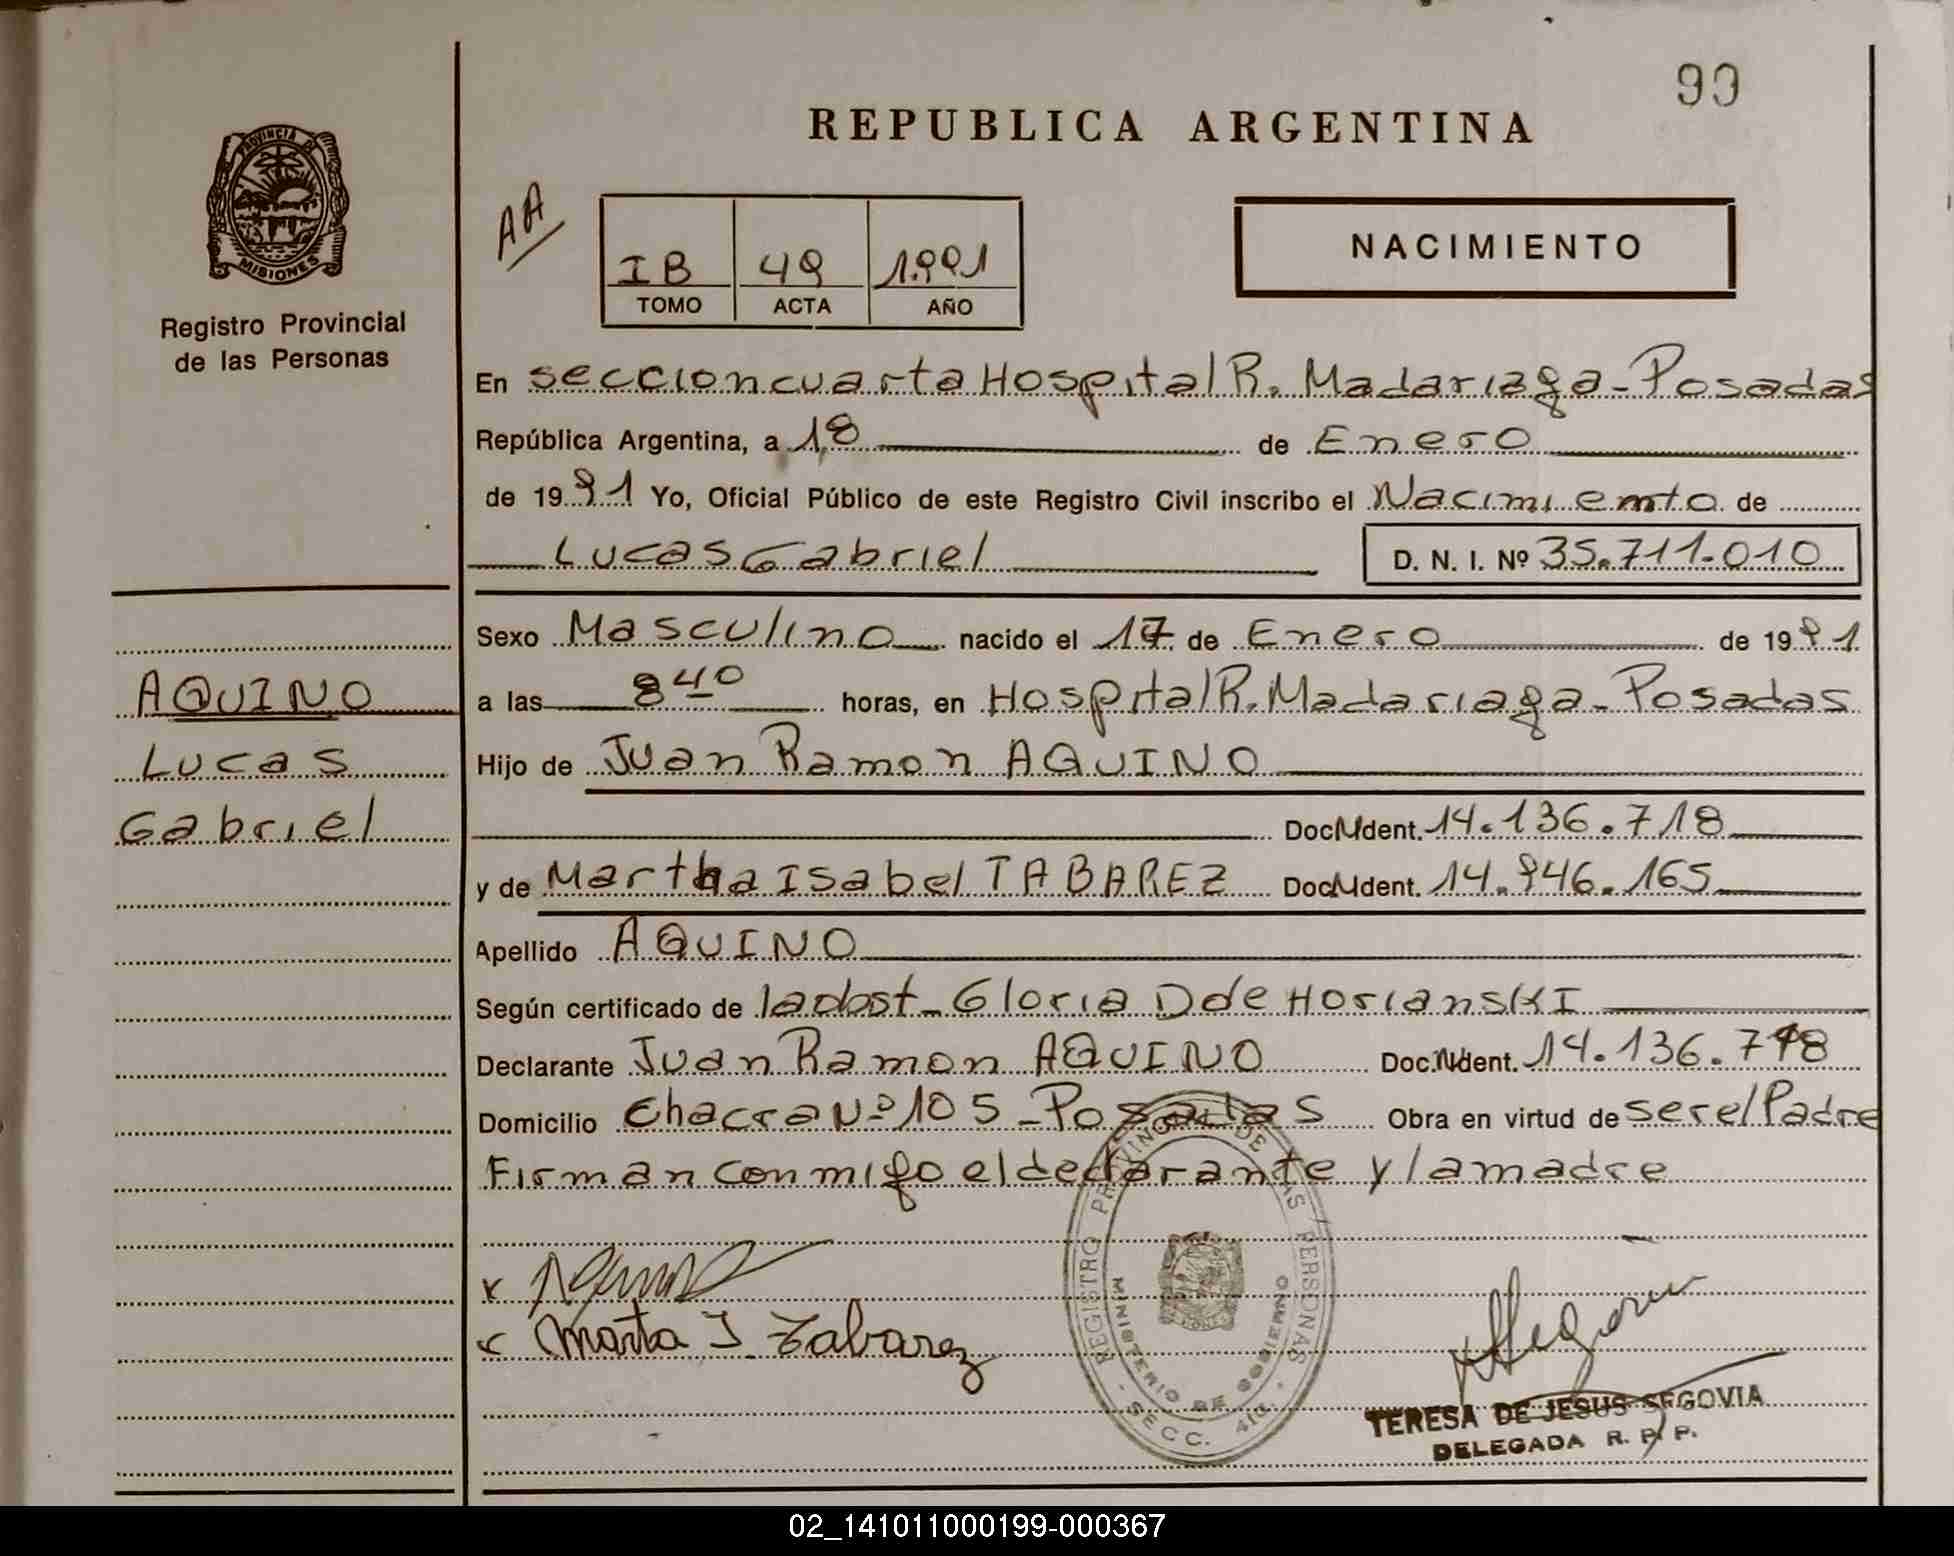 99
REPUBLICA ARGENTINA
PROVINCIA DE
MISIONES
Registro Provincial
de las Personas
AA
IB 49 1.991
TOMO ACTA AÑO
NACIMIENTO
En seccion cuarta Hospital R. Madariaga - Posadas
República Argentina, a 18 de Enero
de 1991 Yo, Oficial Público de este Registro Civil inscribo el Nacimiento de
Lucas Gabriel D. N. I. Nº 35.711.010
Sexo Masculino nacido el 17 de Enero de 1991
AQUINO
a las 8 40 horas, en Hospital R. Madariaga - Posadas
Lucas
Hijo de Juan Ramon AQUINO
Gabriel
Doc. Ident. 14.136.718
y de Martha Isabel TABAREZ Doc. Ident. 14.946.165
Apellido AQUINO
Según certificado de la obst - Gloria D de HorianskI
Declarante Juan Ramon AQUINO Doc. Ident. 14.136.718
Domicilio Chacra Nº 105 - Posadas Obra en virtud de ser el Padre
Firman conmigo el declarante y la madre
x
x Marta I Tabarez
REGISTRO PROVINCIAL DE LAS PERSONAS
MINISTERIO DE GOBIERNO
SECC. 4ta.
TERESA DE JESUS SEGOVIA
DELEGADA R. P. P.
02_141011000199-000367